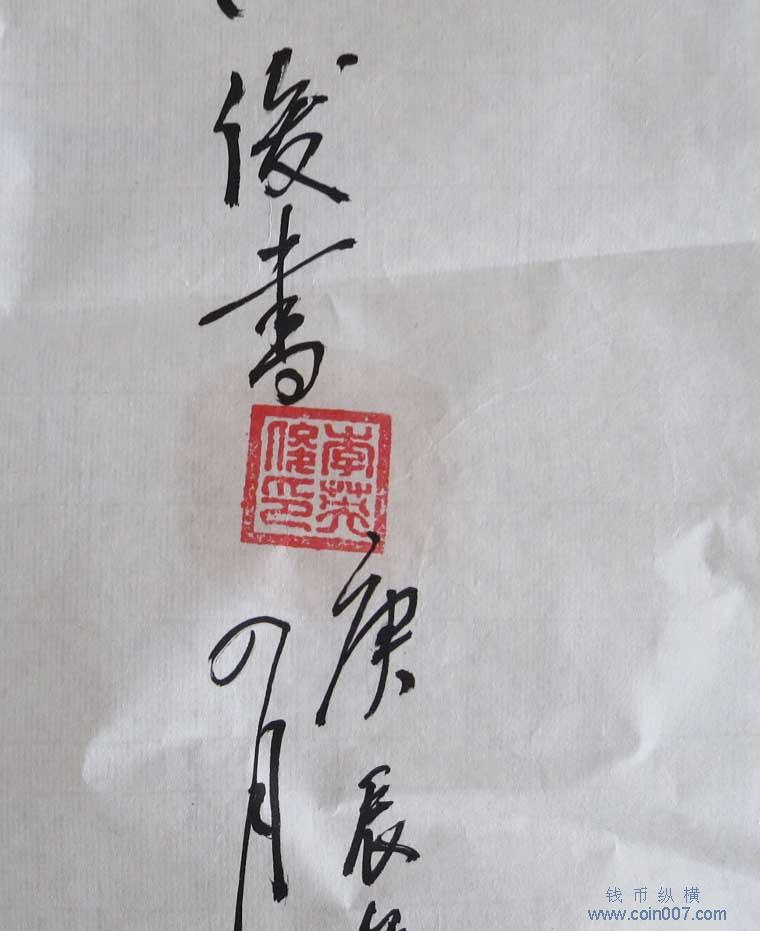 俊書
李英
俊印
庚辰
四月
钱币纵横
www.coin007.com